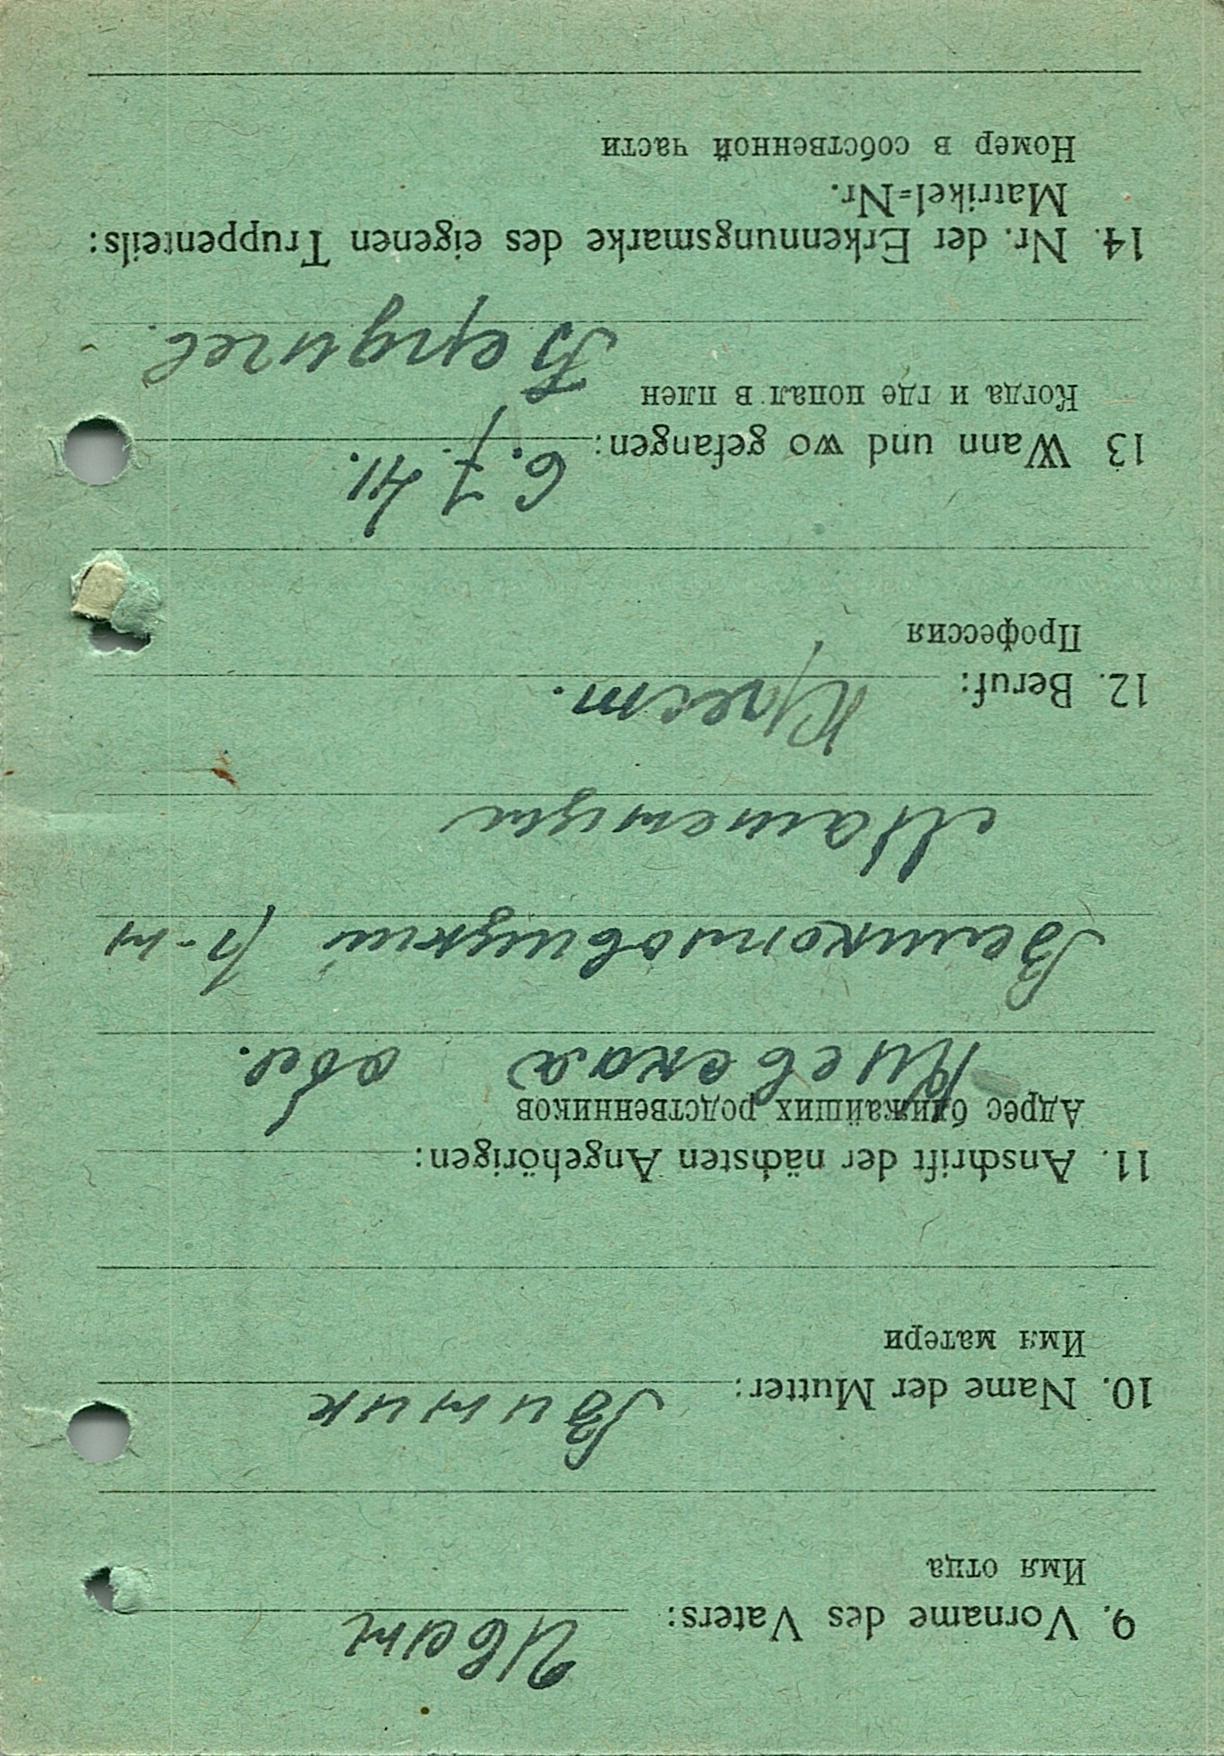 9. Vorname des Vaters: Иван
Имя отца
10. Name der Mutter: Винник
Имя матери
11. Anschrift der nächsten Angehörigen:
Адрес ближайших родственников
Киевская обл.
р-н
12. Beruf: Крест.
Профессия
13 Wann und wo gefangen: 6.7.41.
Когда и где попал в плен
Бердичев.
14. Nr. der Erkennungsmarke des eigenen Truppenteils:
Matrikel=Nr.
Номер в собственной части